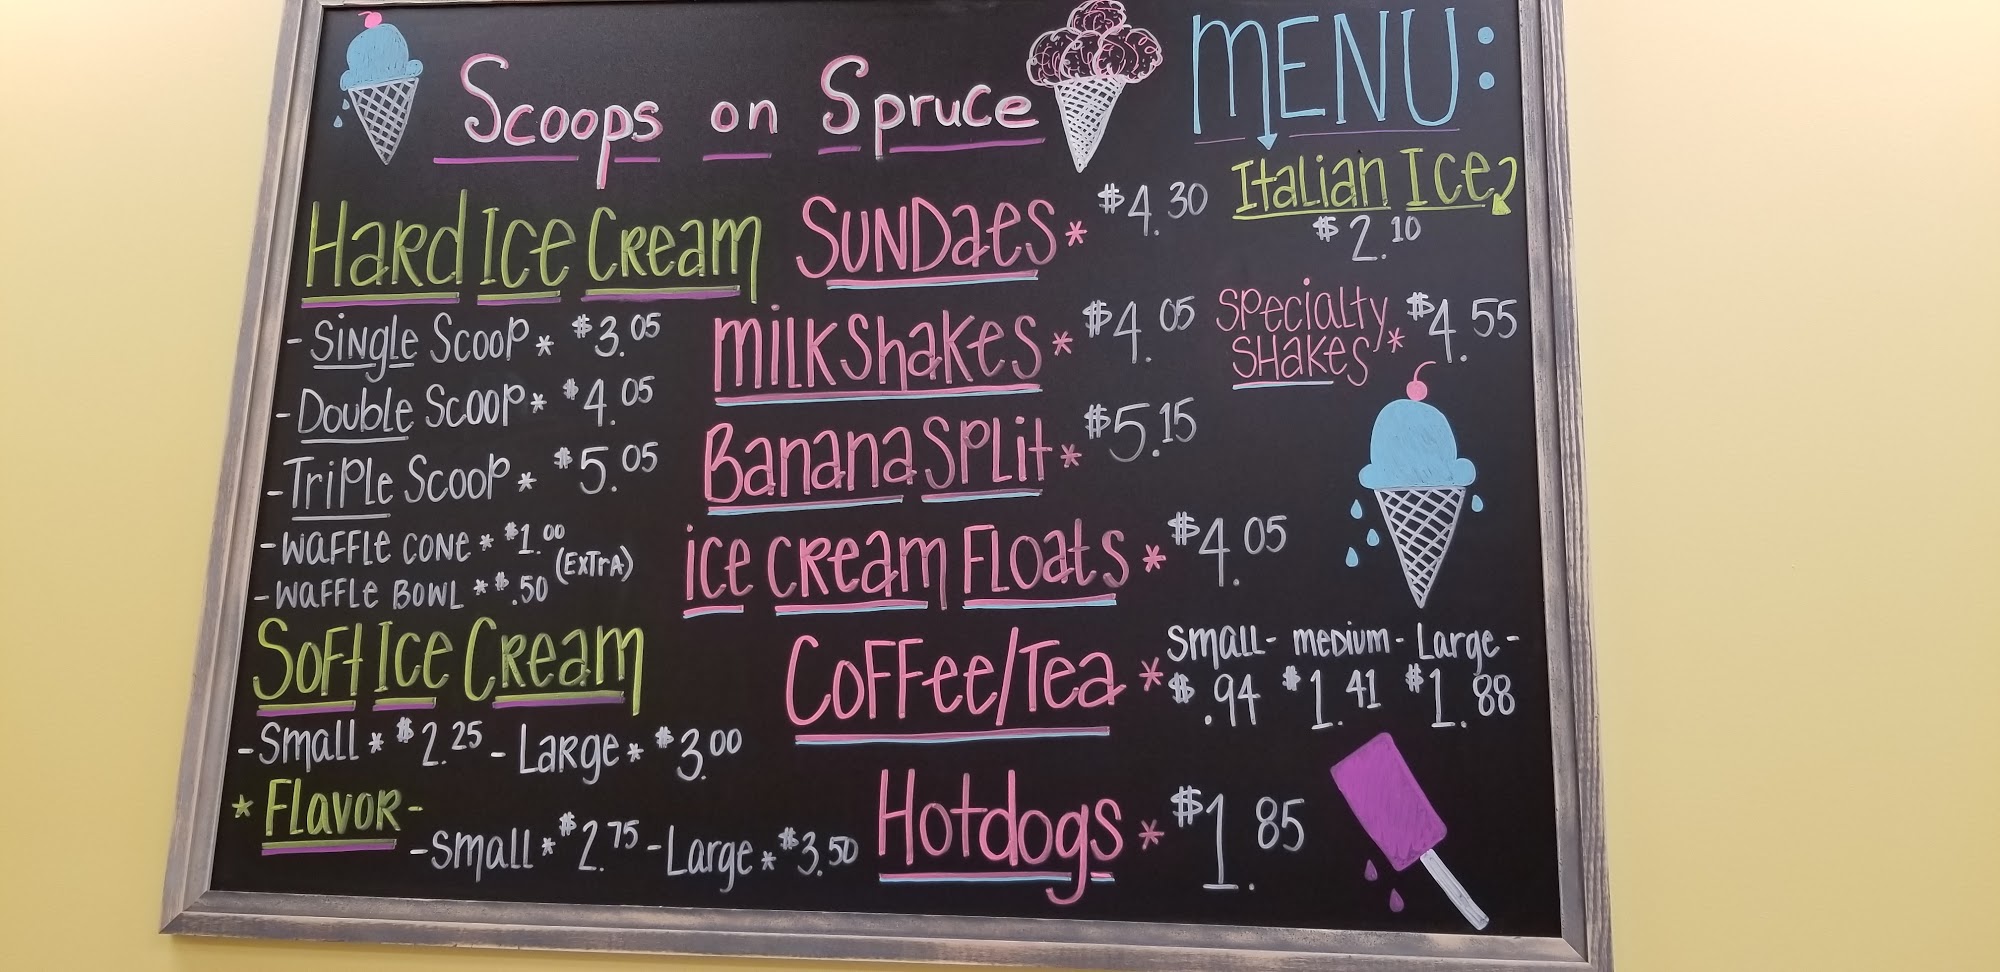 Scoops on Spruce
MENU:
Hard Ice Cream
- Single Scoop * $3.05
- Double Scoop * $4.05
- Triple Scoop * $5.05
- Waffle Cone * $1.00
- Waffle Bowl * $.50 (Extra)
Soft Ice Cream
- Small * $2.25 - Large * $3.00
* Flavor -
- Small * $2.75 - Large * $3.50
Sundaes * $4.30
Milkshakes * $4.05
Banana Split * $5.15
Ice Cream Floats * $4.05
Coffee/Tea *
Small - Medium - Large -
$.94 $1.41 $1.88
Hotdogs * $1.85
Italian Ice
$2.10
Specialty
Shakes * $4.55